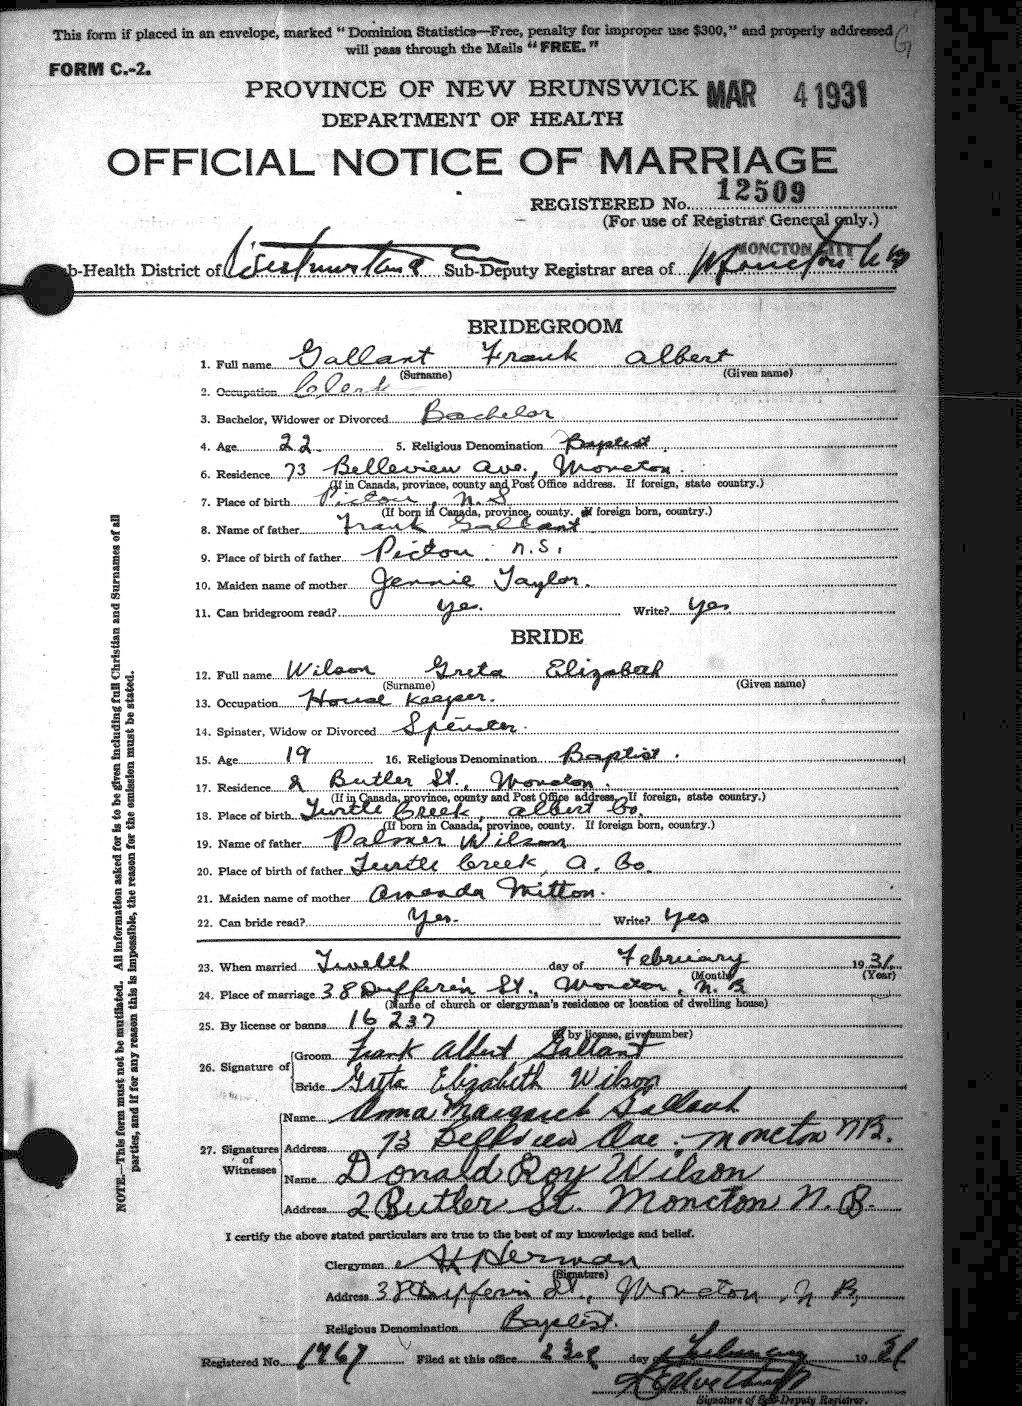 This form if placed in an envelope, marked "Dominion Statistics—Free, penalty for improper use $300," and properly addressed
will pass through the Mails "FREE."
FORM C.-2.
PROVINCE OF NEW BRUNSWICK MAR 4 1931
DEPARTMENT OF HEALTH
OFFICIAL NOTICE OF MARRIAGE
REGISTERED No. 12509
(For use of Registrar General only.)
MONCTON CITY
b-Health District of Westmorland Sub-Deputy Registrar area of Moncton N B
BRIDEGROOM
1. Full name Gallant Frank Albert
(Surname) (Given name)
2. Occupation Clerk
3. Bachelor, Widower or Divorced Bachelor
4. Age 22 5. Religious Denomination Baptist
6. Residence 73 Belleview Ave., Moncton.
(If in Canada, province, county and Post Office address. If foreign, state country.)
7. Place of birth Pictou, N.S
(If born in Canada, province, county. If foreign born, country.)
8. Name of father Frank Gallant
9. Place of birth of father Pictou N.S.
10. Maiden name of mother Jennie Taylor.
11. Can bridegroom read? Yes. Write? Yes
BRIDE
12. Full name Wilson Greta Elizabeth
(Surname) (Given name)
13. Occupation House Keeper.
14. Spinster, Widow or Divorced Spinster.
15. Age 19 16. Religious Denomination Baptist.
17. Residence 2 Butler St., Moncton.
(If in Canada, province, county and Post Office address. If foreign, state country.)
18. Place of birth Turtle Creek, Albert Co.
(If born in Canada, province, county. If foreign born, country.)
19. Name of father Palmer Wilson
20. Place of birth of father Turtle Creek, A. Co.
21. Maiden name of mother Amanda Mitton.
22. Can bride read? Yes. Write? Yes
23. When married Twelth day of February 1931.
(Month) (Year)
24. Place of marriage 38 Dufferin St., Moncton, N. B
(Name of church or clergyman's residence or location of dwelling house)
25. By license or banns 16237
(If by license, give number)
26. Signature of Groom Frank Albert Gallant
Bride Greta Elizabeth Wilson
27. Signatures of Witnesses Name Anna Margaret Gallant
Address 73 Bellview Ave. Moncton N.B.
Name Donald Roy Wilson
Address 2 Butler St. Moncton N. B.
I certify the above stated particulars are true to the best of my knowledge and belief.
Clergyman Herman
(Signature)
Address 38 Dufferin St., Moncton, N B,
Religious Denomination Baptist.
Registered No. 1767 Filed at this office 23rd day of February 1931
Signature of Sub-Deputy Registrar.
NOTE.—This form must not be mutilated. All information asked for is to be given including full Christian and Surnames of all
parties, and if for any reason this is impossible, the reason for the emission must be stated.